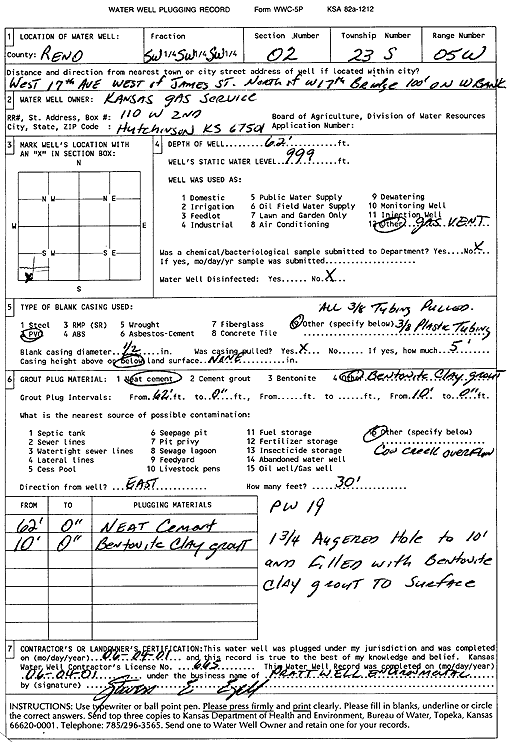 WATER WELL PLUGGING RECORD Form WWC-5P KSA 82a-1212
1 LOCATION OF WATER WELL: Fraction Section Number Township Number Range Number
County: RENO SW 1/4 SW 1/4 SW 1/4 02 23 S 05W
Distance and direction from nearest town or city street address of well if located within city?
WEST 17th AVE WEST of JAMES ST. NORTH of W 17th Bridge 100' ON W BANK
2 WATER WELL OWNER: KANSAS GAS SERVICE
RR#, St. Address, Box #: 110 W 2ND Board of Agriculture, Division of Water Resources
City, State, ZIP Code : Hutchinson KS 67501 Application Number:
3 MARK WELL'S LOCATION WITH AN "X" IN SECTION BOX:
N
N W N E
W E
S W S E
X
S
4 DEPTH OF WELL....62'....ft.
WELL'S STATIC WATER LEVEL..999..ft.
WELL WAS USED AS:
1 Domestic 5 Public Water Supply 9 Dewatering
2 Irrigation 6 Oil Field Water Supply 10 Monitoring Well
3 Feedlot 7 Lawn and Garden Only 11 Injection Well
4 Industrial 8 Air Conditioning 12 Other.. GAS VENT
Was a chemical/bacteriological sample submitted to Department? Yes....No.X..
If yes, mo/day/yr sample was submitted.................
Water Well Disinfected: Yes..... No..X..
5 TYPE OF BLANK CASING USED: ALL 3/8 Tubing PULLED.
1 Steel 3 RMP (SR) 5 Wrought 7 Fiberglass 9 Other (specify below) 3/8 PLASTIC TUBING
2 PVC 4 ABS 6 Asbestos-Cement 8 Concrete Tile
Blank casing diameter..1/2...in. Was casing pulled? Yes.X... No..... If yes, how much..5'..
Casing height above or below land surface...NONE...in.
6 GROUT PLUG MATERIAL: 1 Neat cement 2 Cement grout 3 Bentonite 4 Other Bentonite Clay grout
Grout Plug Intervals: From..62'.ft. to..0"..ft., From......ft. to......ft., From.10'. to..0".ft.
What is the nearest source of possible contamination:
1 Septic tank 6 Seepage pit 11 Fuel storage 16 Other (specify below)
2 Sewer lines 7 Pit privy 12 Fertilizer storage
3 Watertight sewer lines 8 Sewage lagoon 13 Insecticide storage Cow creek overflow
4 Lateral lines 9 Feedyard 14 Abandoned water well
5 Cess Pool 10 Livestock pens 15 Oil well/Gas well
Direction from well?..EAST.. How many feet?..30'..
FROM TO PLUGGING MATERIALS
62' 0" NEAT Cement
10' 0" Bentonite Clay grout
PW 19
1 3/4 AUGERED HOLE TO 10'
AND FILLED WITH BENTONITE
CLAY grout TO SURFACE
7 CONTRACTOR'S OR LANDOWNER'S CERTIFICATION: This water well was plugged under my jurisdiction and was completed
on (mo/day/year)..06-04-01..and this record is true to the best of my knowledge and belief. Kansas
Water Well Contractor's License No. ..665.. This Water Well Record was completed on (mo/day/year)
..06-04-01.. under the business name of PRATT WELL ENVIRONMENTAL
by (signature) Steven E.
INSTRUCTIONS: Use typewriter or ball point pen. Please press firmly and print clearly. Please fill in blanks, underline or circle
the correct answers. Send top three copies to Kansas Department of Health and Environment, Bureau of Water, Topeka, Kansas
66620-0001. Telephone: 785/296-3565. Send one to Water Well Owner and retain one for your records.